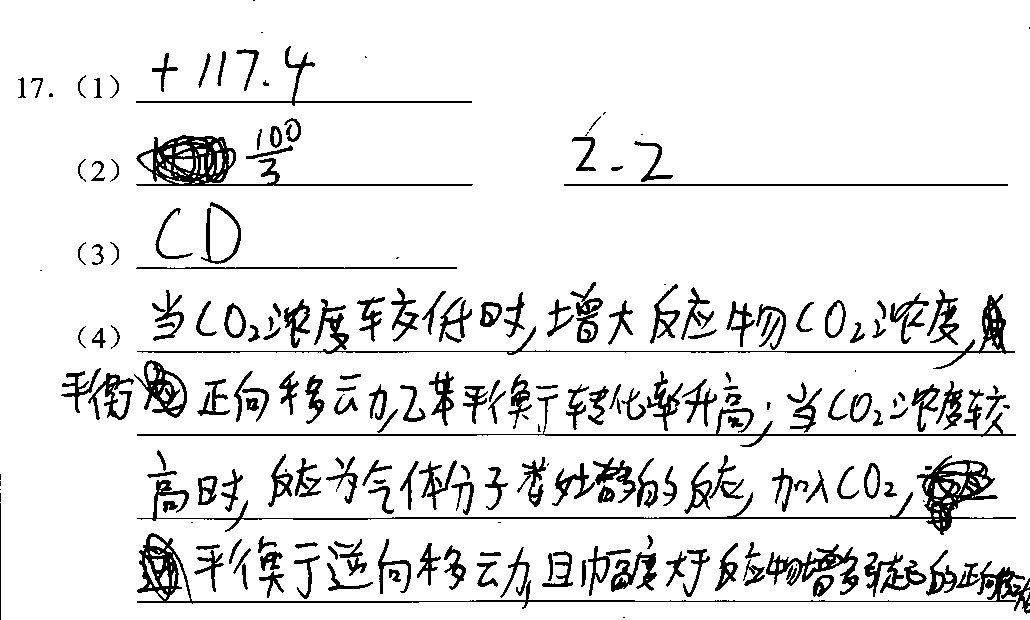 17.（1） +117.4
（2） 100/3 2.2
（3） CD
（4） 当CO₂浓度较低时,增大反应物CO₂浓度,
平衡正向移动,乙苯平衡转化率升高;当CO₂浓度较
高时,反应为气体分子数增多的反应,加入CO₂,
平衡逆向移动,且幅度大于反应物增多引起的正向移动